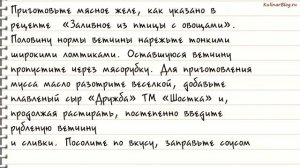 KulinarBlog.ru
Приготовьте мясное желе, как указано в
рецепте «Заливное из птицы с овощами».
Половину нормы ветчины нарежьте тонкими
широкими ломтиками. Оставшуюся ветчину
пропустите через мясорубку. Для приготовления
мусса масло разотрите веселкой, добавьте
плавленый сыр «Дружба» ТМ «Шостка» и,
продолжая растирать, постепенно введите
рубленую ветчину
и сливки. Посолите по вкусу, заправьте соусом